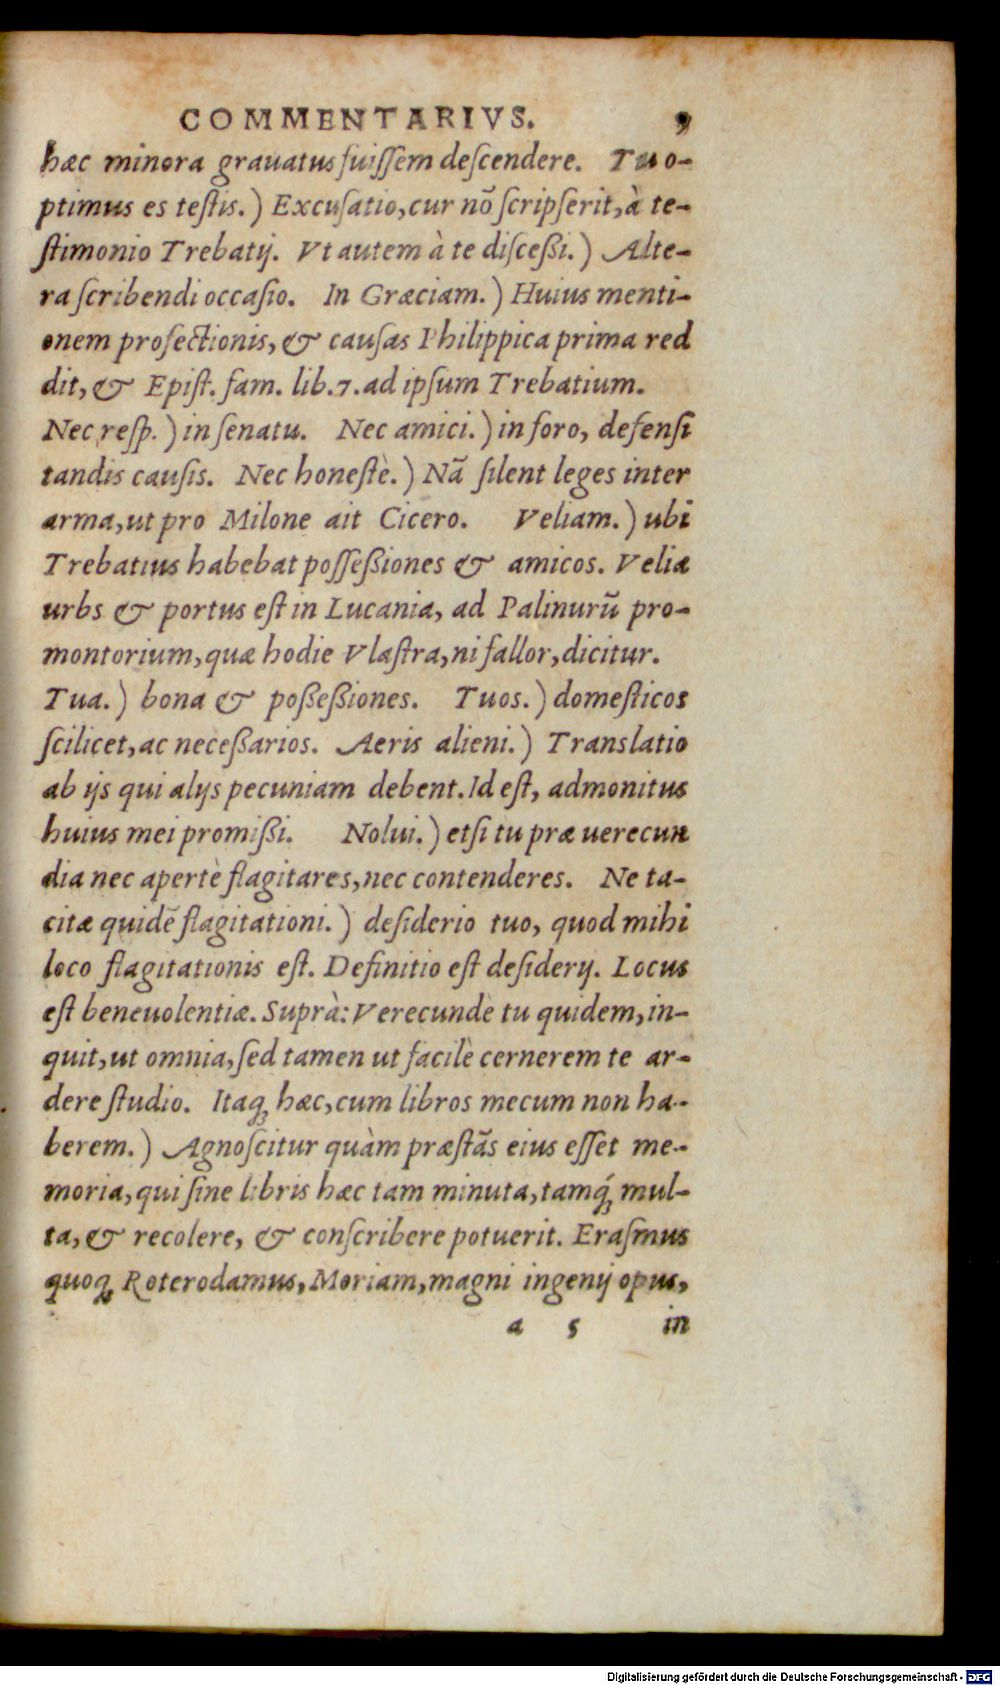 COMMENTARIVS. 9
hæc minora grauatus fuiſſem deſcendere. Tu o-
ptimus es teſtis.) Excuſatio, cur nõ ſcripſerit, à te-
ſtimonio Trebatij. Vt autem à te diſceßi.) Alte-
ra ſcribendi occaſio. In Græciam.) Huius menti-
onem profectionis, & cauſas Philippica prima red
dit, & Epiſt. fam. lib. 7. ad ipſum Trebatium.
Nec reſp.) in ſenatu. Nec amici.) in foro, defenſi
tandis cauſis. Nec honeſtè.) Nã ſilent leges inter
arma, ut pro Milone ait Cicero. Veliam.) ubi
Trebatius habebat poſſeßiones & amicos. Velia
urbs & portus eſt in Lucania, ad Palinurũ pro-
montorium, quæ hodie Vlaſtra, ni fallor, dicitur.
Tua.) bona & poßeßiones. Tuos.) domeſticos
ſcilicet, ac neceßarios. Aeris alieni.) Translatio
ab ijs qui alijs pecuniam debent. Id eſt, admonitus
huius mei promißi. Nolui.) etſi tu præ uerecun
dia nec apertè flagitares, nec contenderes. Ne ta-
citæ quidẽ flagitationi.) deſiderio tuo, quod mihi
loco flagitationis eſt. Definitio eſt deſiderij. Locus
eſt beneuolentiæ. Suprà: Verecundè tu quidem, in-
quit, ut omnia, ſed tamen ut facilè cernerem te ar-
dere ſtudio. Itaq; hæc, cum libros mecum non ha-
berem.) Agnoſcitur quàm præſtãs eius eſſet me-
moria, qui ſine libris hæc tam minuta, tamq́; mul-
ta, & recolere, & conſcribere potuerit. Eraſmus
quoq; Roterodamus, Moriam, magni ingenij opus,
a 5 in
Digitalisierung gefördert durch die Deutsche Forschungsgemeinschaft - DFG